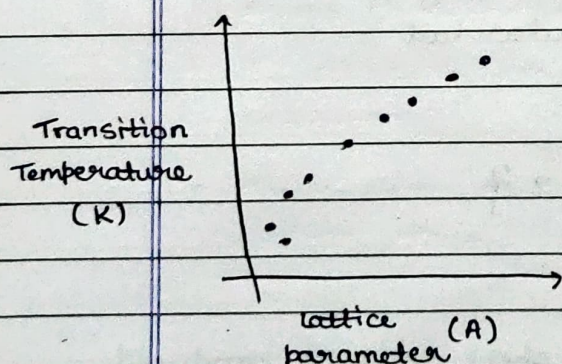 Transition
Temperature
(K)
Lattice (A)
parameter